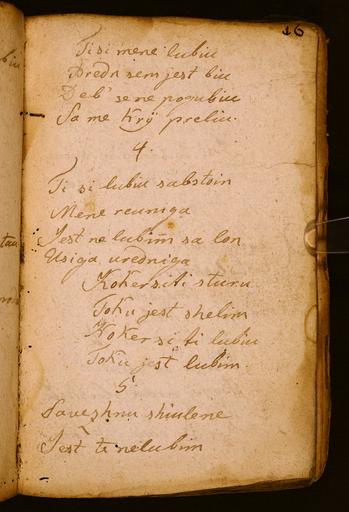 16
Ti si mene lubiu
Predn sem jest biu
De b' se ne pogubiu
Sa me Kry preliu.
4.
Ti si lubiu sabstoin
Mene reuniga
Jest ne lubim sa lon
Usiga uredniga
Koker si ti sturu
Toku jest shelim
Koker si ti lubiu
Toku jest lubim.
5
Saveshnu shiulene
Jest te ne lubim